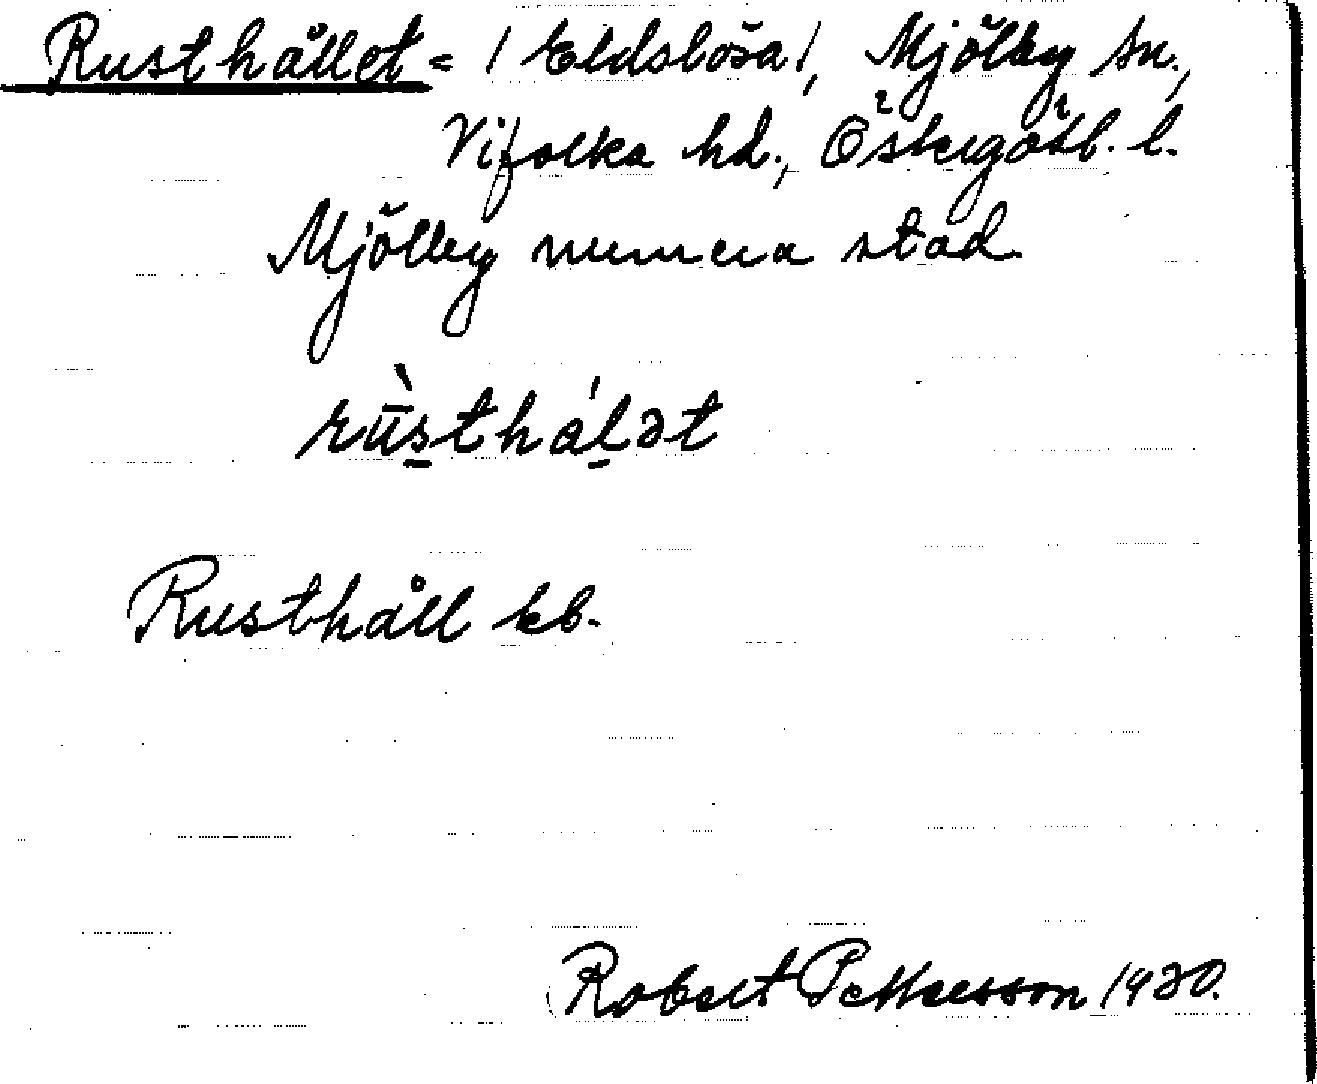 Rusthållet = / Eldslösa /, Mjölby sn.,
Vifolka hd., Östergötl. l.
Mjölby numera stad
rùsthálət
Rusthåll kb.
Robert Pettersson 1930.